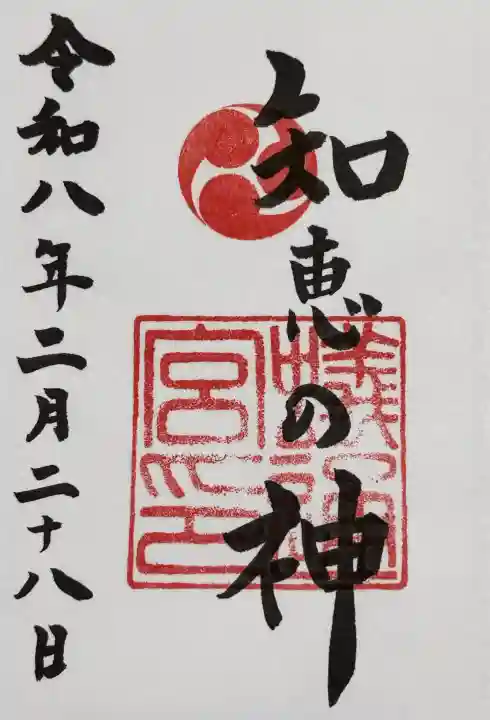 知恵の神
令和八年二月二十八日